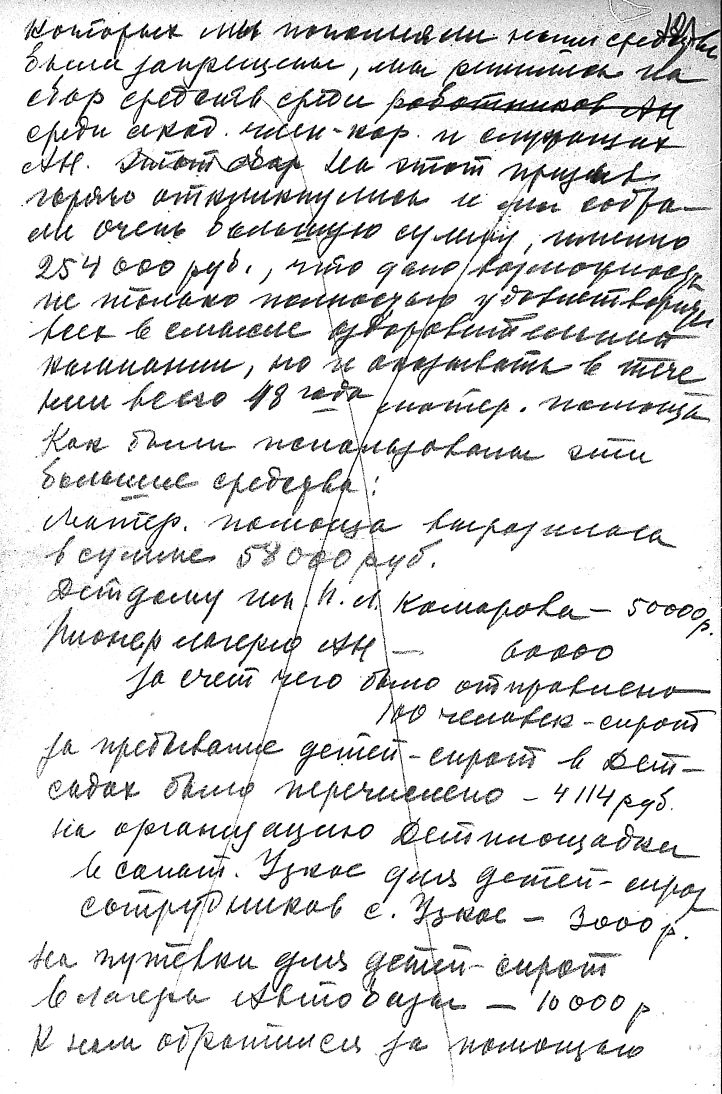 которых мы пополняли наши средства
были запрещены, мы решились на
сбор средств среди работников АН
среди акад. член-кор. и служащих
АН. Этот сбор На этот призыв
горячо откликнулись и мы собра-
ли очень большую сумму, именно
254 000 руб., что дало возможность
не только полностью удовлетворить
всех в смысле оздоровительной
кампании, но и оказывать в тече
нии всего 48 года матер. помощь
Как были использованы эти
большие средства:
Матер. помощь выразилась
в сумме 58 000 руб.
Детдому им. Комарова – 50000 р.
Пионер лагерю АН – 60000
за счет чего было отправлено
100 человек-сирот
За пребывание детей-сирот в Дет-
садах было перечислено – 4114 руб.
На организацию Детплощадки
в санат. Узкое для детей-сирот
сотрудников с. Узкое – 3000 р.
На путевки для детей-сирот
в лагерь Автобазы – 10 000 р
К нам обратился за помощью